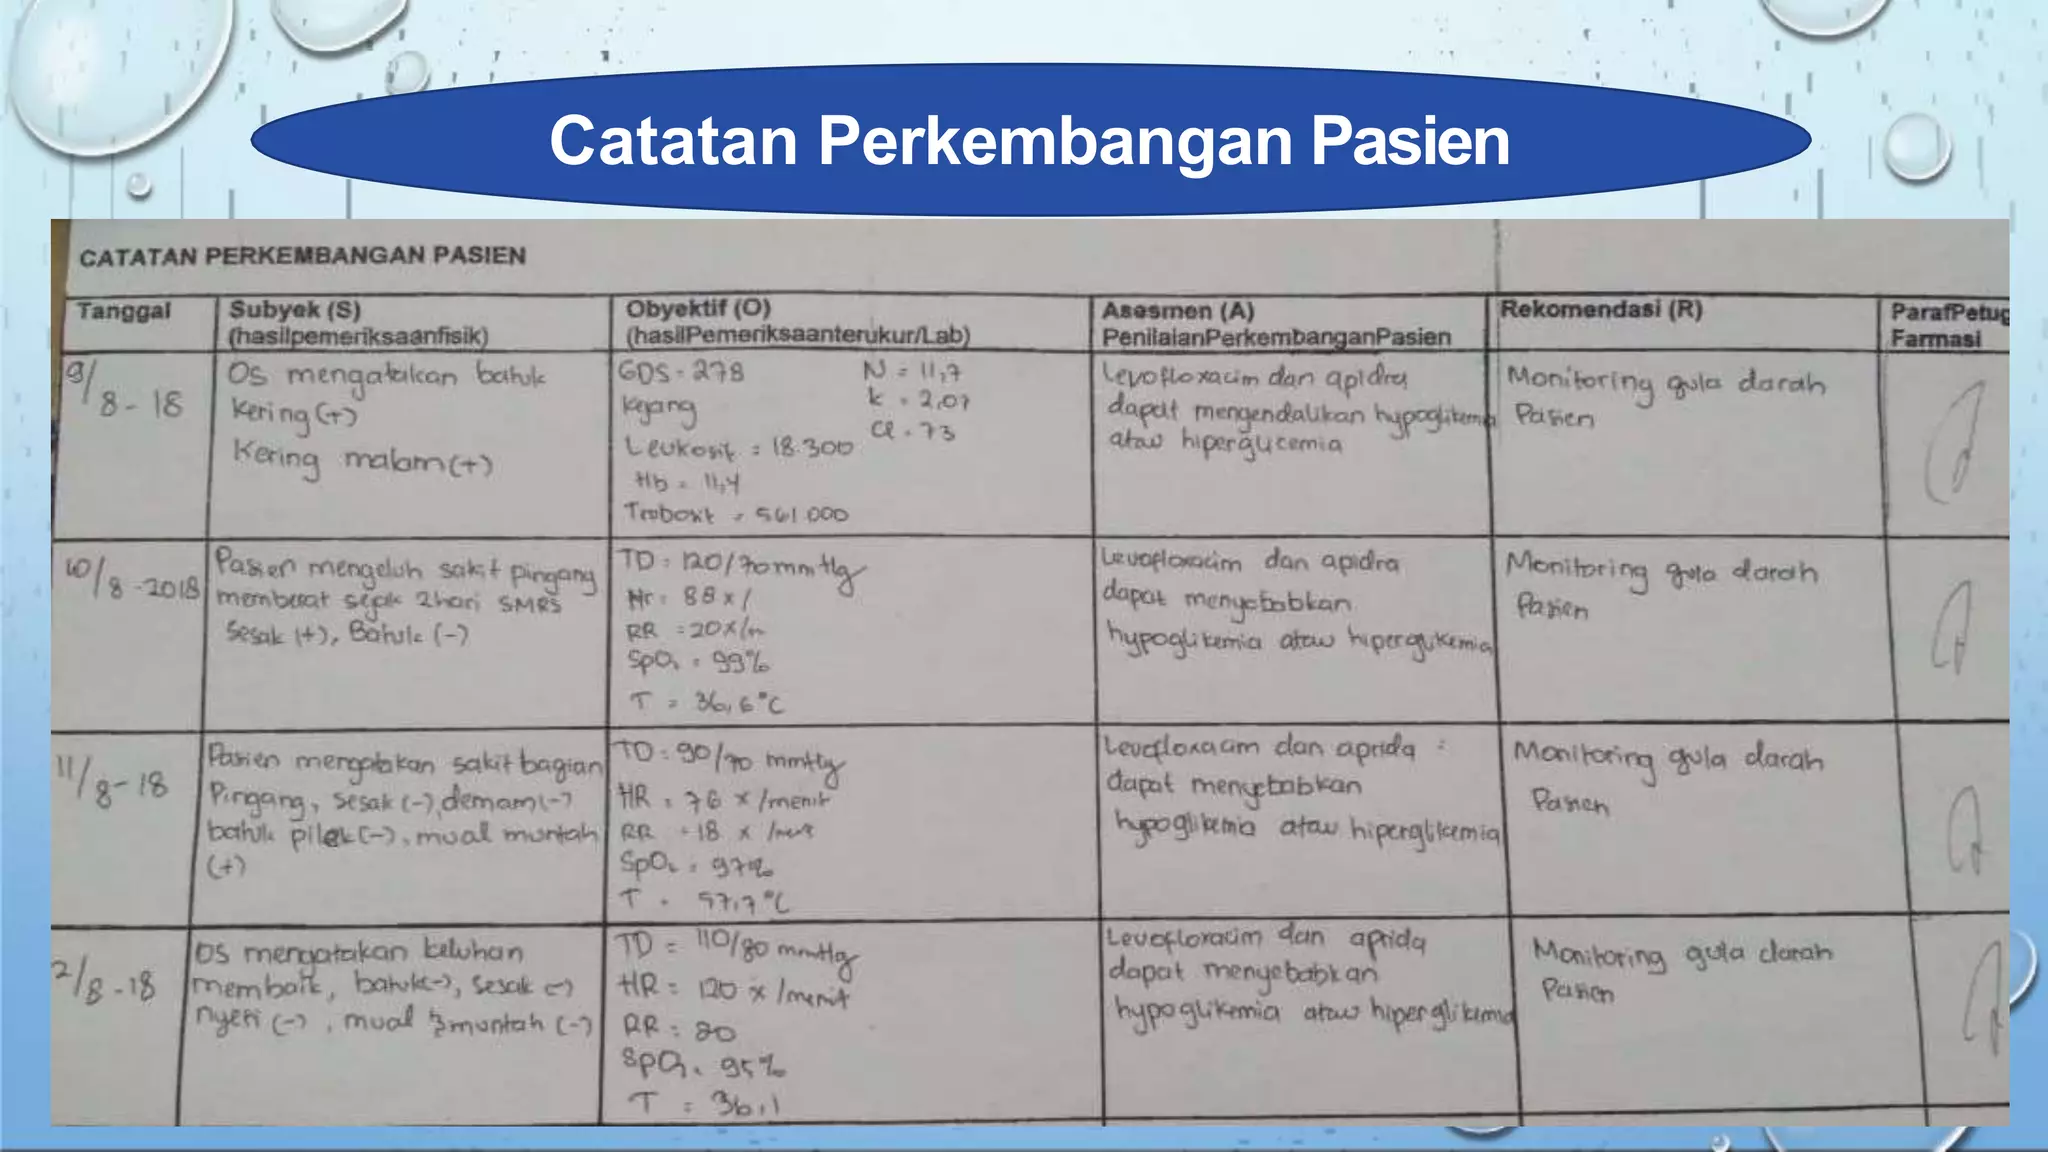 Catatan Perkembangan Pasien
CATATAN PERKEMBANGAN PASIEN
Tanggal
Subyek (S)
(hasilpemeriksaanfisik)
Obyektif (O)
(hasilPemeriksaanterukur/Lab)
Asesmen (A)
PenilaianPerkembanganPasien
Rekomendasi (R)
ParafPetug
Farmasi
9/8-18
OS mengatakan batuk
kering (+)
Kering malam (+)
GDS = 278
kejang
Leukosit = 18.300
Hb = 11,4
Trobosit = 561.000
N = 11,7
K = 2,07
Cl = 73
Levofloxacim dan apidra
dapat mengendalikan hypoglikemia
ataw hiperglicemia
Monitoring gula darah
Pasien
10/8-2018
Pasien mengeluh sakit pingang
memberat sejak 2 hari SMRS
Sesak (+), Batuk (-)
TD : 120/70 mmHg
Hr : 88 x/
RR : 20x/m
SpO2 : 99%
T = 36,6°C
Levofloxacim dan apidra
dapat menyebabkan
hypoglikemia ataw hiperglikemia
Monitoring gula darah
Pasien
11/8-18
Pasien mengatakan sakit bagian
Pingang, sesak (-), demam (-)
batuk pilek (-), mual muntah
(+)
TD : 90/70 mmHg
HR : 76 x/menit
RR : 18 x
SpO2 : 97%
T = 57,7°C
Levofloxacim dan aprida :
dapat menyebabkan
hypoglikemia ataw hiperglikemia
Monitoring gula darah
Pasien
2/8-18
OS mengatakan keluhan
membaik, batuk (-), sesak (-)
nyeri (-), mual muntah (-)
TD = 110/80 mmHg
HR : 120 x/menit
RR : 20
SpO2 : 95%
T : 36,1
Levofloxacim dan aprida
dapat menyebabkan
hypoglikemia ataw hiperglikemia
Monitoring gula darah
Pasien